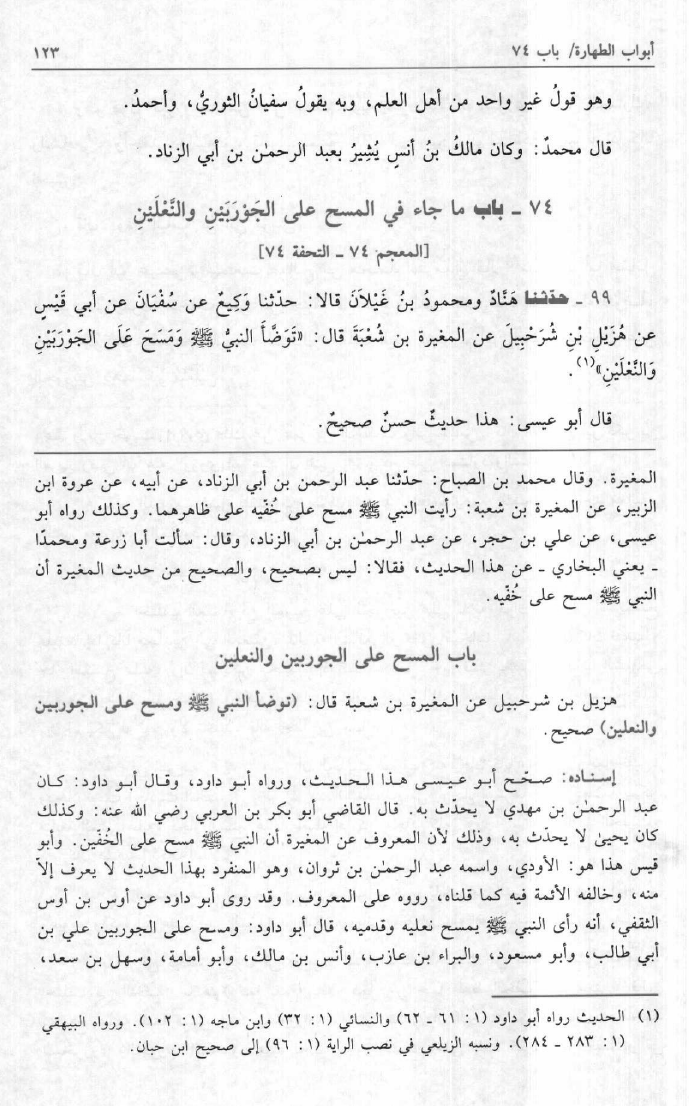 أبواب الطهارة/ باب ٧٤ ١٢٣
وهو قولُ غير واحد من أهل العلم، وبه يقولُ سفيانُ الثوريُّ، وأحمدُ.
قال محمدٌ: وكان مالكُ بنُ أنسٍ يُشِيرُ بعبد الرحمٰن بن أبي الزناد.
٧٤ ـ باب ما جاء في المسح على الجَوْرَبَيْنِ والنَّعْلَيْنِ
[المعجم ٧٤ ـ التحفة ٧٤]
٩٩ ـ حدّثنا هَنَّادٌ ومحمودُ بنُ غَيْلاَنَ قالا: حدّثنا وَكِيعٌ عن سُفْيَانَ عن أبي قَيْسٍ
عن هُزَيْلِ بْنِ شُرَحْبِيلَ عن المغيرة بن شُعْبَةَ قال: «تَوَضَّأَ النبيُّ ﷺ وَمَسَحَ عَلَى الجَوْرَبَيْنِ
وَالنَّعْلَيْنِ»(١).
قال أبو عيسى: هذا حديثٌ حسنٌ صحيحٌ.
المغيرة. وقال محمد بن الصباح: حدّثنا عبد الرحمن بن أبي الزناد، عن أبيه، عن عروة ابن
الزبير، عن المغيرة بن شعبة: رأيت النبي ﷺ مسح على خُفّيه على ظاهرهما. وكذلك رواه أبو
عيسى، عن علي بن حجر، عن عبد الرحمٰن بن أبي الزناد، وقال: سألت أبا زرعة ومحمدًا
ـ يعني البخاري ـ عن هذا الحديث، فقالا: ليس بصحيح، والصحيح من حديث المغيرة أن
النبي ﷺ مسح على خُفّيه.
باب المسح على الجوربين والنعلين
هزيل بن شرحبيل عن المغيرة بن شعبة قال: (توضأ النبي ﷺ ومسح على الجوربين
والنعلين) صحيح.
إسناده: صحّح أبو عيسى هذا الحديث، ورواه أبو داود، وقال أبو داود: كان
عبد الرحمٰن بن مهدي لا يحدّث به. قال القاضي أبو بكر بن العربي رضي الله عنه: وكذلك
كان يحيىٰ لا يحدّث به، وذلك لأن المعروف عن المغيرة أن النبي ﷺ مسح على الخُفّين. وأبو
قيس هذا هو: الأودي، واسمه عبد الرحمٰن بن ثروان، وهو المنفرد بهذا الحديث لا يعرف إلاّ
منه، وخالفه الأئمة فيه كما قلناه، رووه على المعروف. وقد روى أبو داود عن أوس بن أوس
الثقفي، أنه رأى النبي ﷺ يمسح نعليه وقدميه، قال أبو داود: ومسح على الجوربين علي بن
أبي طالب، وأبو مسعود، والبراء بن عازب، وأنس بن مالك، وأبو أمامة، وسهل بن سعد،
(١) الحديث رواه أبو داود (١ : ٦١ ـ ٦٢) والنسائي (١ : ٣٢) وابن ماجه (١ : ١٠٢). ورواه البيهقي
(١ : ٢٨٣ ـ ٢٨٤). ونسبه الزيلعي في نصب الراية (١ : ٩٦) إلى صحيح ابن حبان.